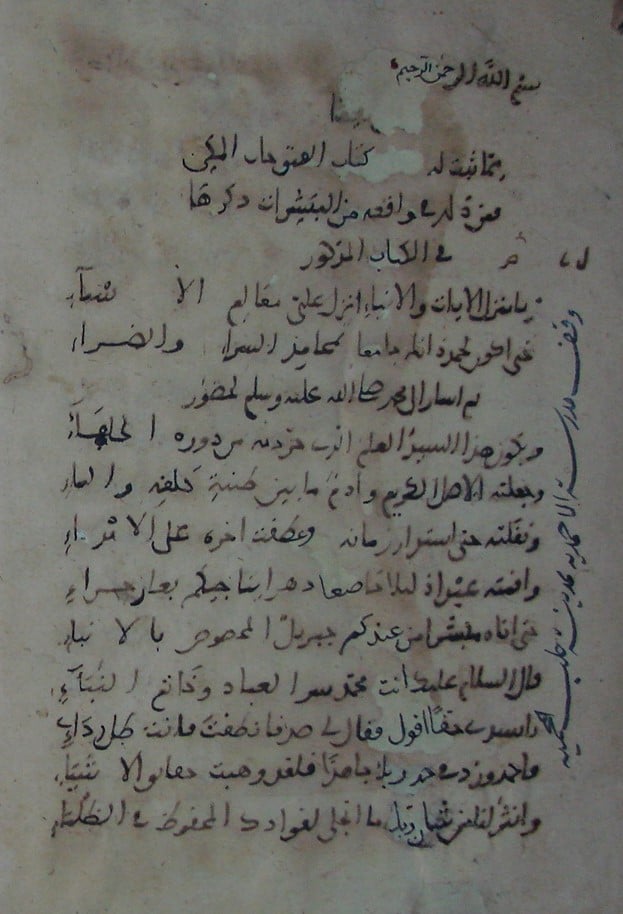 بسم الله الرحمن الرحيم
مما ثبت له كتاب الفتوحات المكي
في واقعه من المبشرات ذكرها
في الكتاب المذكور
يا منزل الايات والانباء انزل على معالم الاسماء
حتى اكون لحمد ذاتك جامعا بمحامد السرا والضراء
ثم اشار الى محمد صلى الله عليه وسلم
ويكون هذا السيد العلم الذي جردته من دوره الخلفاء
وجعلته الاصل الكريم وادم ما بين طينة خلقه والماء
ونقلته حتى استدار زمانه وعطفت اخره على الابداء
واقمته عبدا ذليلا خاضعا دهرا يناجيكم بغار حراء
حتى اتاه مبشرا من عندكم جبريل المخصوص بالانباء
قال السلام عليك انت محمد سر العباد وخاتم النباء
يا سيدي حقا اقول فقال لي صدقا نطقت فانت ظل رداء
فاحمد وزد في حمد ربك جاهدا فلقد وهبت حقايق الاشياء
وانثر لنا من شان ربك ما انجلى لفوادك المحفوظ في الظلماء
وقف مدرسة الاحمديه بمدينة حلب المحميه